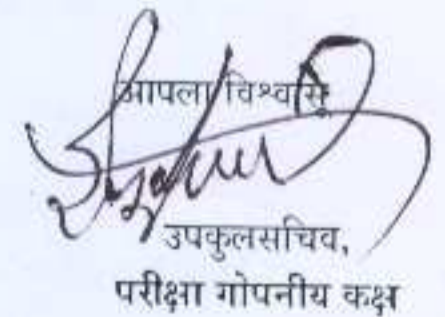 आपला विश्वासू
उपकुलसचिव,
परीक्षा गोपनीय कक्ष